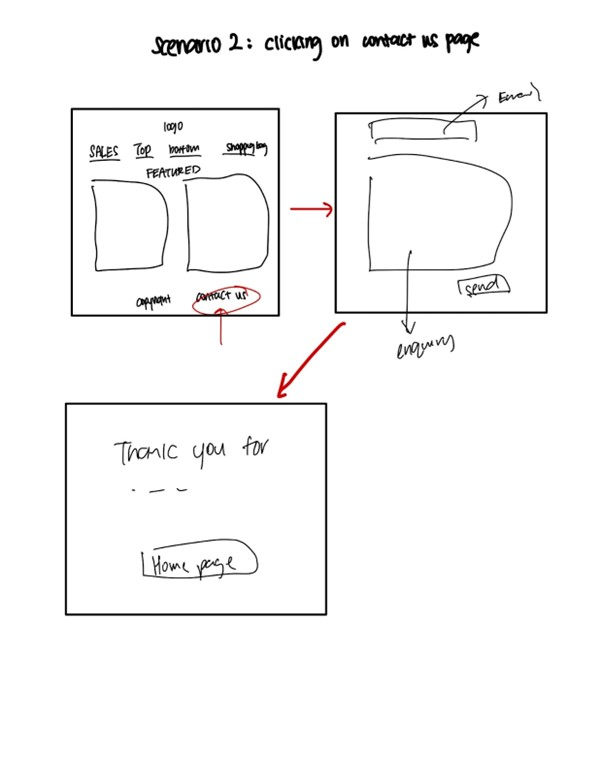 Scenario 2: clicking on contact us page
logo
SALES Top bottom shopping bag
FEATURED
copyright contact us
Email
send
enquiry
Thank you for
---
Home page